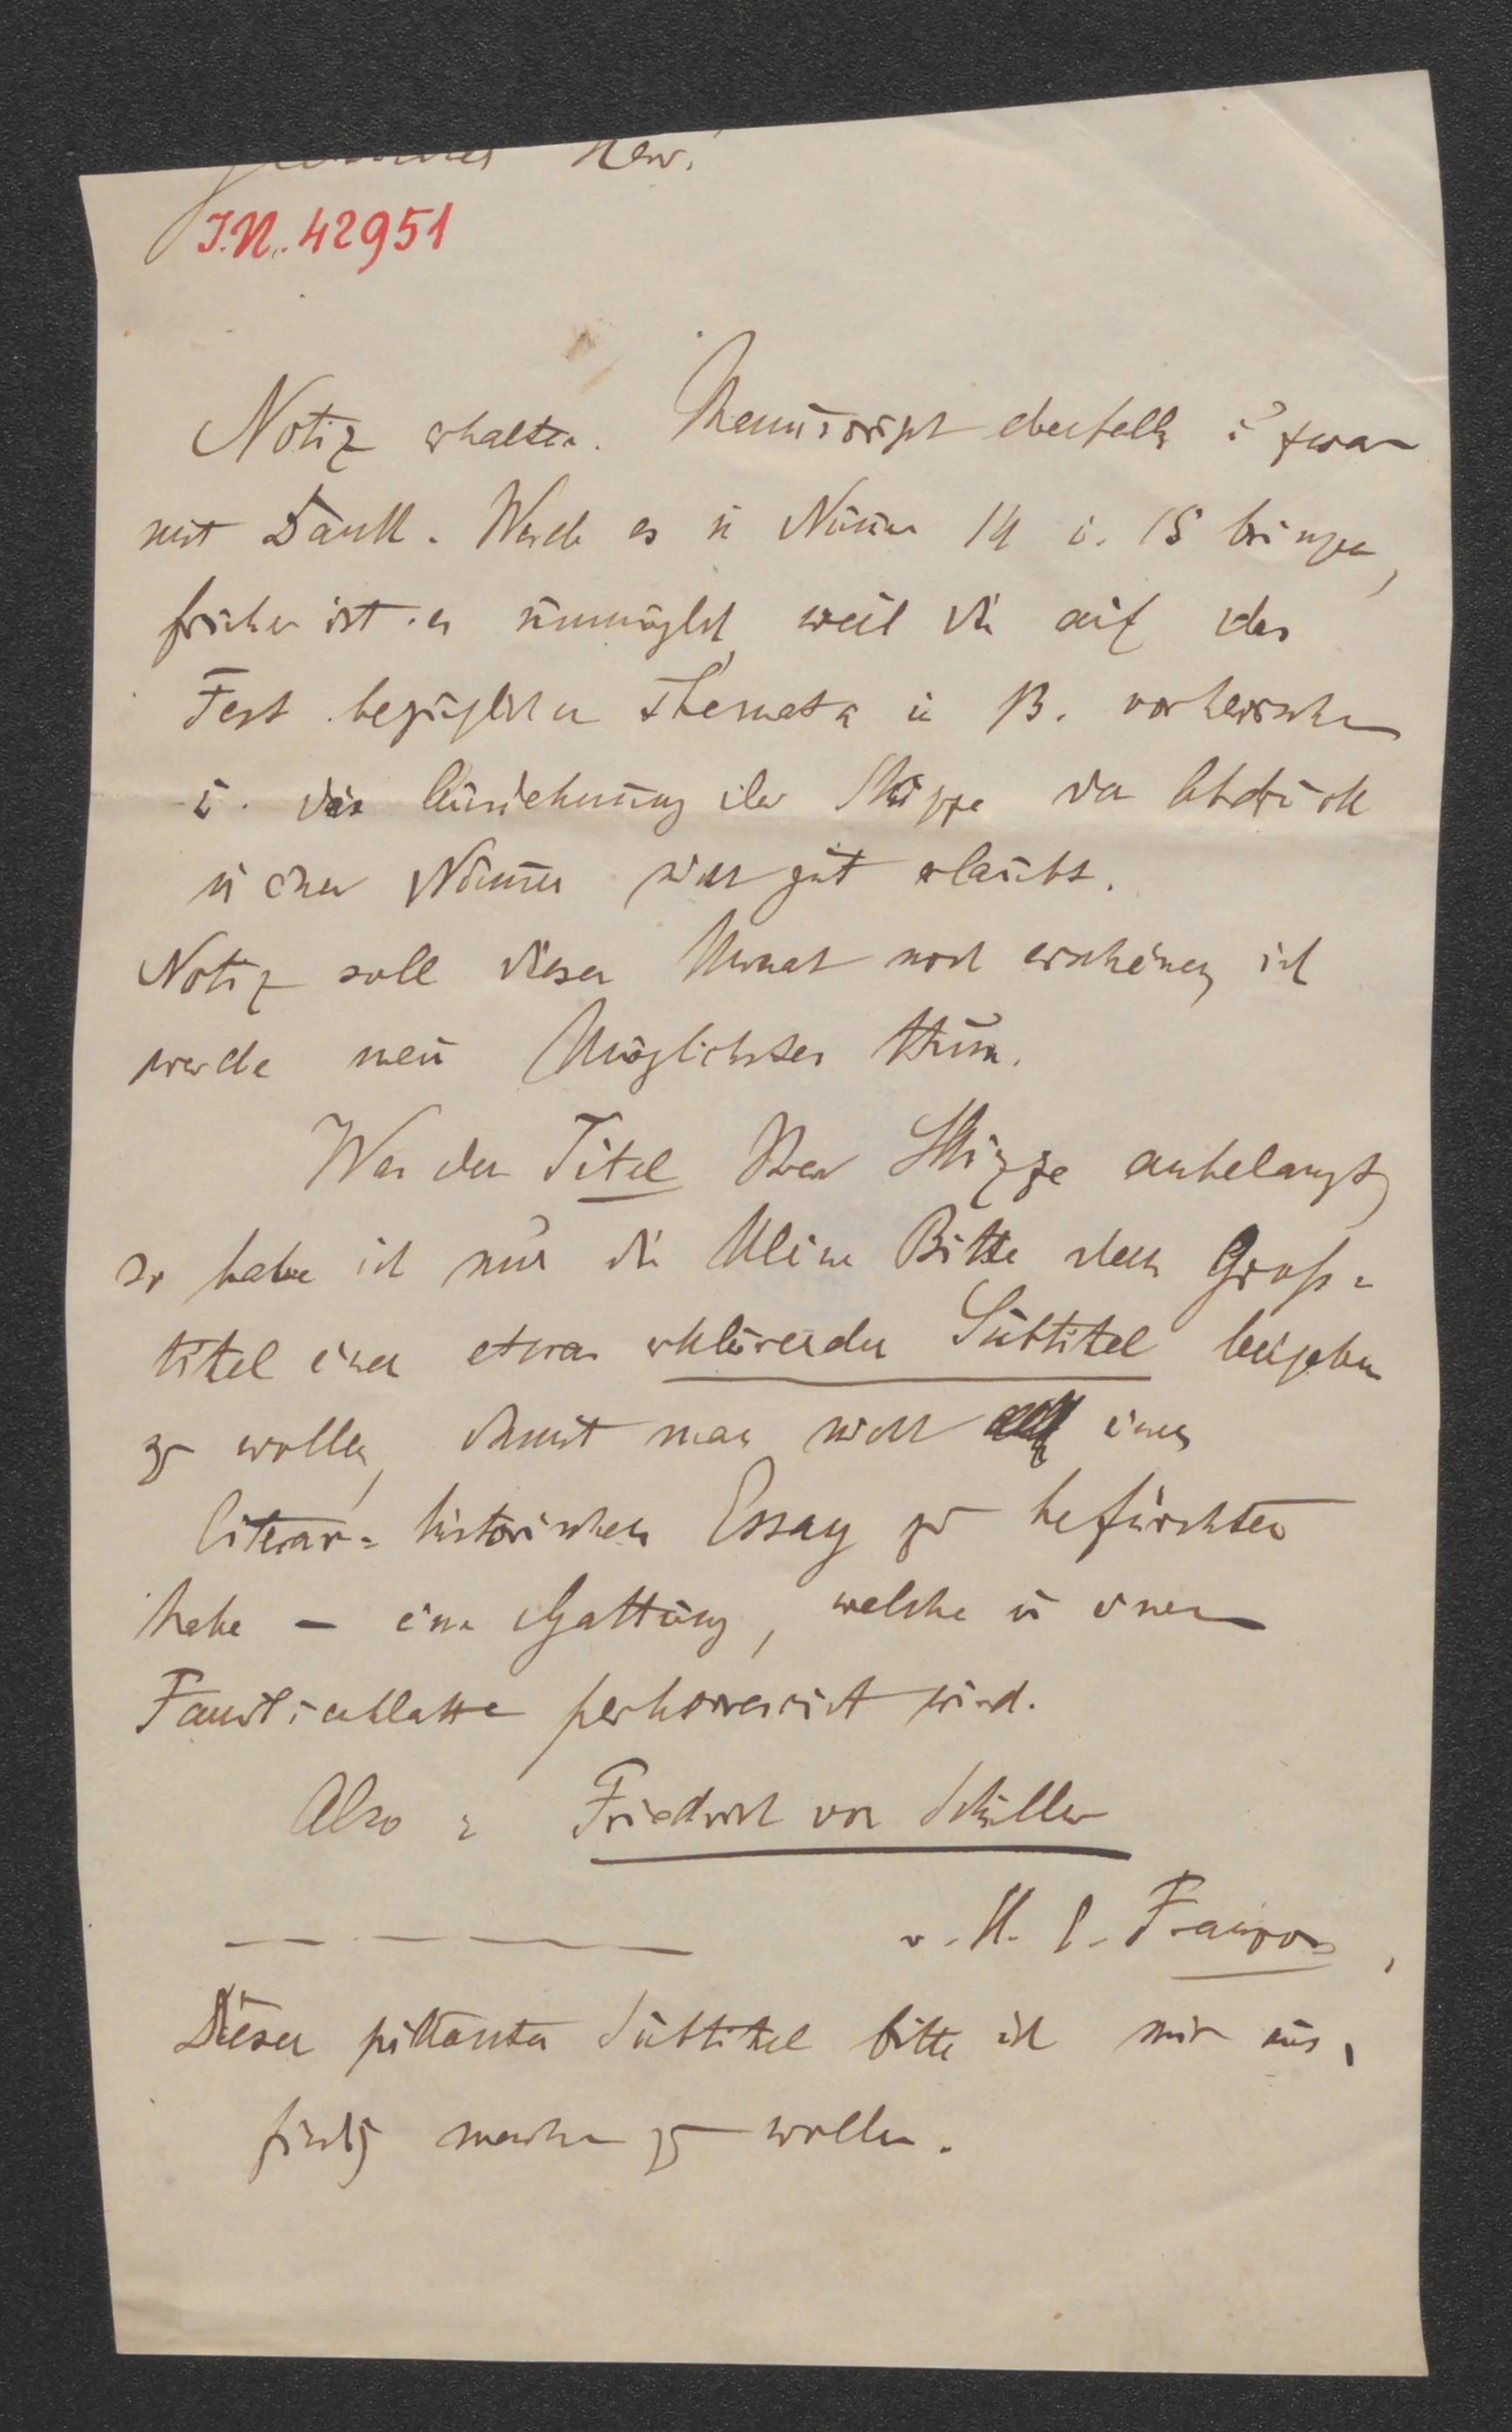 Herr!
I.N. 42951
Notiz erhalten. Manuscript ebenfalls u zwar
mit Dank. Werde es in Num̄er 14 u. 15 bringen,
früher ist es unmöglich, weil die auf das
Fest bezüglichen Themata in B. vorherrschen
u. die Ausdehnung der Skizze den Abdruck
in einer Num̄er nicht gut erlaubt.
Notiz soll diesen Monat noch erscheinen, ich
werde mein Möglichstes thun.
Was den Titel Ihrer Skizze anbelangt,
so habe ich nur die kleine Bitte dem Groß=
titel einen etwas erklärenden Subtitel beigeben
zu wollen, damit man nicht einen
literar=historischen Essay zu befürchten
habe – eine Gattung, welche in einem
Familienblatte perhorrescirt wird.
Also: Friedrich von Schiller
v. K. E. Franzos,
Diesen pikanten Subtitel bitte ich mir aus,
findig machen zu wollen.